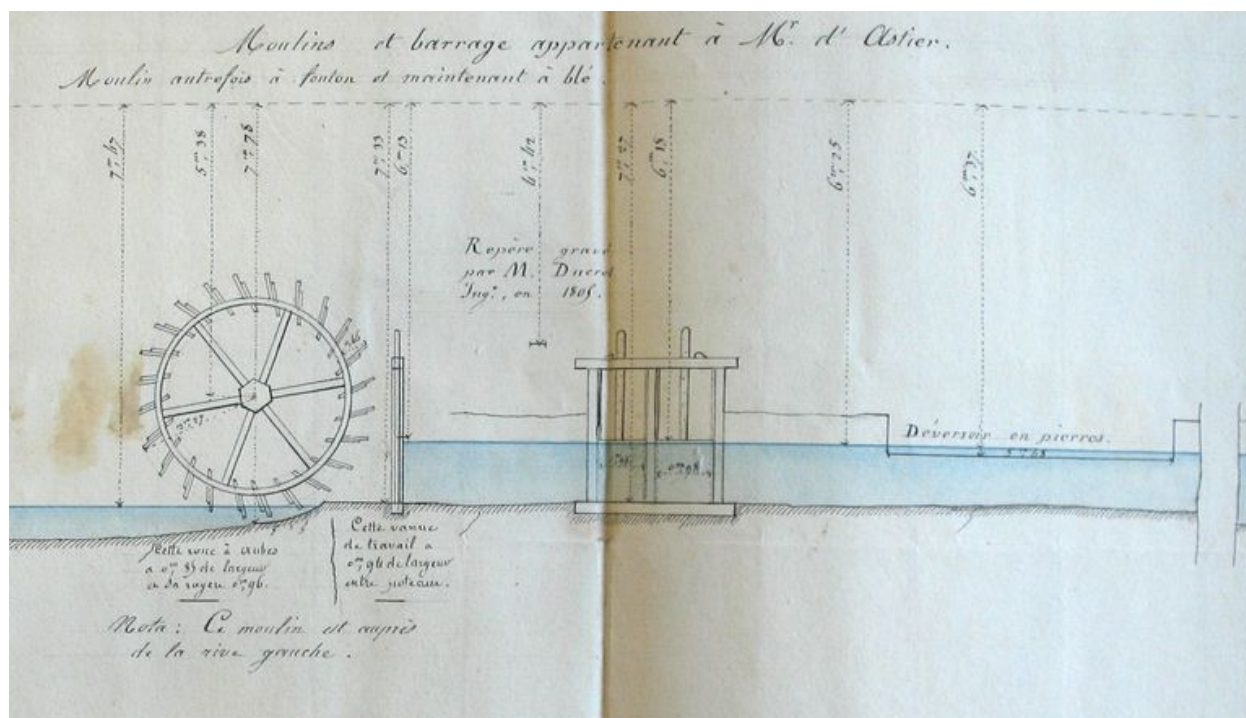 Moulins et barrage appartenant à Mr. d'Astier.
Moulin autrefois à foulon et maintenant à blé.
7m,67
5m,38
7m,78
7m,33
6m,13
6m,62
7m,27
6m,18
6m,25
6m,37
Repère gravé
par M. Ducros
Ingr., en 1805.
Déversoir en pierres.
0m,98
Cette roue à aubes
a 0m,85 de largeur
en sa rayon 0m,96.
Cette vanne
de travail a
0m,96 de largeur
entre poteaux.
Nota: Ce moulin est auprès
de la rive gauche.